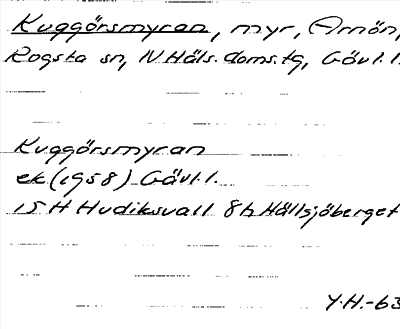 Kuggörsmyran, myr, Arnön,
Rogsta sn, N Häls. doms.tg, Gävl.l.
Kuggörsmyran
ek (1958) Gävl.l.
15 H Hudiksvall 8h Hällsjöberget
Y.H.-63